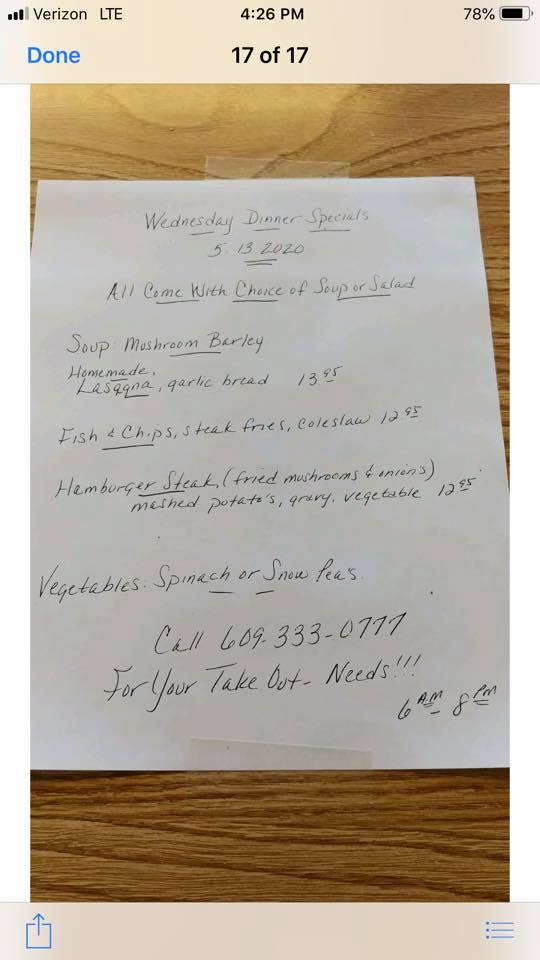 Verizon LTE 4:26 PM 78%
Done 17 of 17
Wednesday Dinner Specials
5.13.2020
All Come With Choice of Soup or Salad
Soup: Mushroom Barley
Homemade,
Lasagna, garlic bread 13.95
Fish & Chips, steak fries, coleslaw 12.95
Hamburger Steak, (fried mushrooms & onion's)
mashed potato's, gravy, vegetable 12.95
Vegetables: Spinach or Snow Pea's.
Call 609-333-0777
For Your Take Out- Needs!!!
6 AM - 8 PM